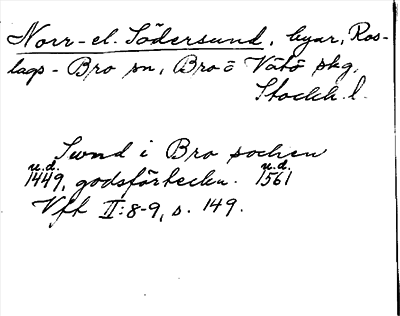 Norr- el. Södersund, byar, Ros-
lags-Bro sn, Bro o Vätö skg,
Stockh. l.
Sund i Bro sochen
u.d. u.d.
1449, godsförteckn. 1561
Vft II:8-9, s. 149.